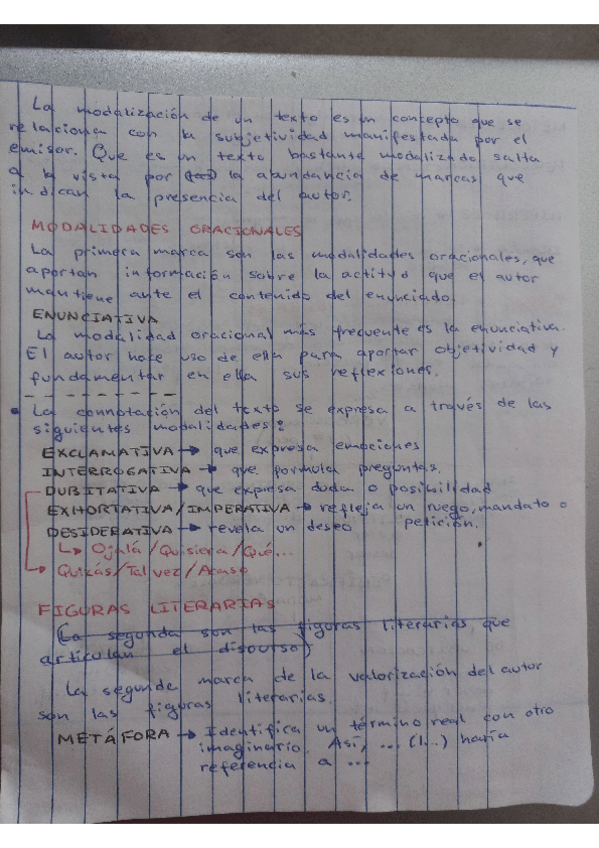 La modalización de un texto es un concepto que se
relaciona con la subjetividad manifestada por el
emisor. Que es un texto bastante modalizado salta
a la vista por la abundancia de marcas que
indican la presencia del autor.
MODALIDADES ORACIONALES
La primera marca son las modalidades oracionales, que
aportan información sobre la actitud que el autor
mantiene ante el contenido del enunciado.
ENUNCIATIVA
La modalidad oracional más frecuente es la enunciativa.
El autor hace uso de ella para aportar objetividad y
fundamentar en ella sus reflexiones.
• La connotación del texto se expresa a través de las
siguientes modalidades:
EXCLAMATIVA → que expresa emociones
INTERROGATIVA → que formula preguntas.
DUBITATIVA → que expresa duda o posibilidad
EXHORTATIVA/IMPERATIVA → refleja un ruego, mandato o
DESIDERATIVA → revela un deseo petición.
↳ Ojalá/Quisiera/Qué...
Quizás/Tal vez/Acaso
FIGURAS LITERARIAS
(La segunda son las figuras literarias, que
articulan el discurso)
La segunda marca de la valorización del autor
son las figuras literarias.
METÁFORA → Identifica un término real con otro
imaginario. Así, ... (l...) haría
referencia a ...